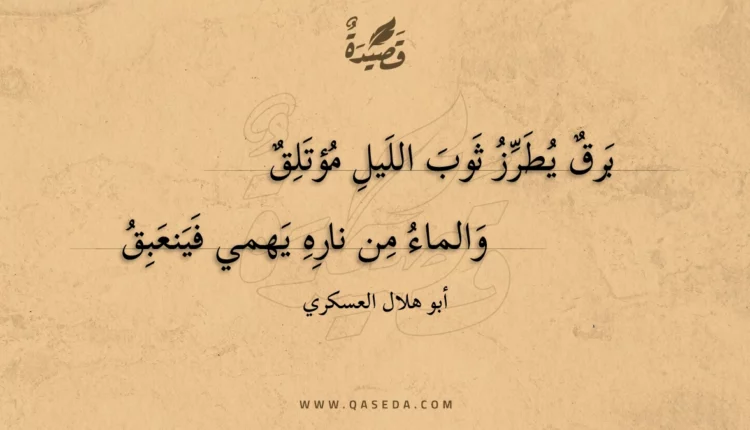 قَصِيْدَةٌ
بَرقٌ يُطَرِّزُ ثَوبَ اللَيلِ مُؤتَلِقٌ
وَالماءُ مِن نارِهِ يَهمي فَيَنعَبِقُ
أبو هلال العسكري
WWW.QASEDA.COM